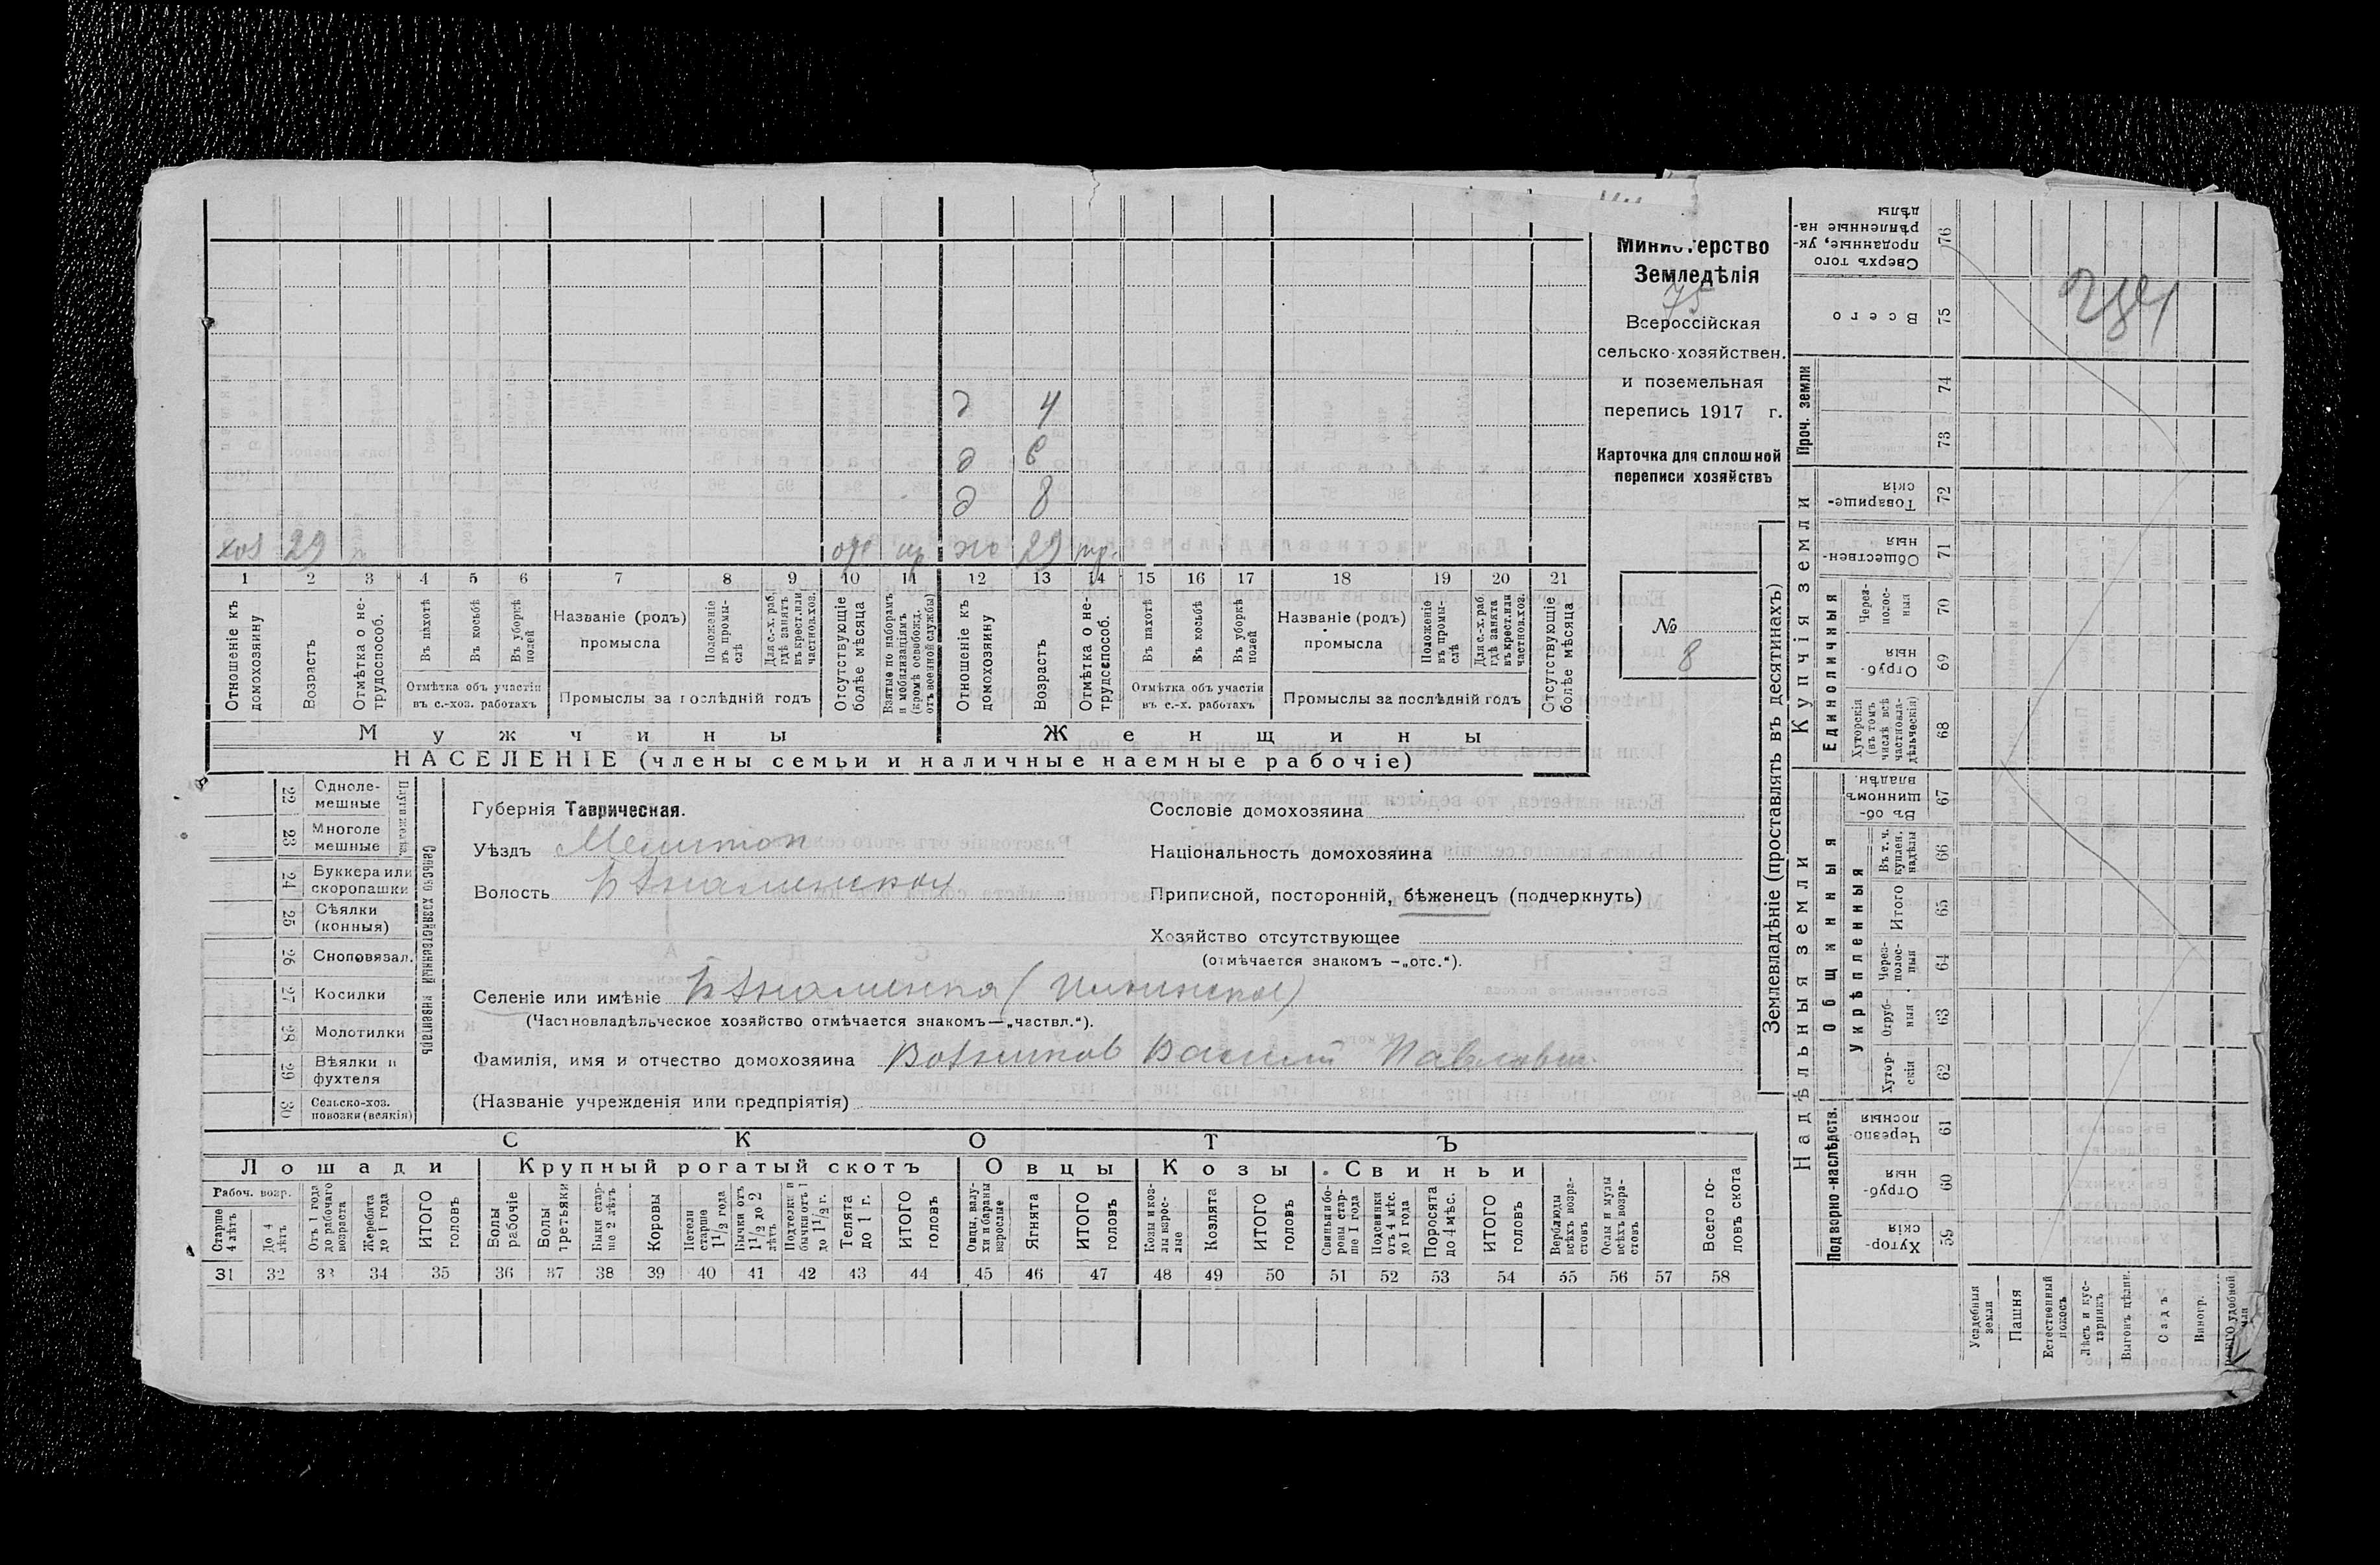 Министерство
Земледѣлія
75
Всероссійская
сельско-хозяйствен.
и поземельная
перепись 1917 г.
Карточка для сплошной
переписи хозяйствъ
№
8
284
д 4
д 6
д 8
хоз 29 отс пр жо 29 пр.
1 2 3 4 5 6 7 8 9 10 11 12 13 14 15 16 17 18 19 20 21
Отношеніе къ домохозяину
Возрастъ
Отмѣтка о нетрудоспособ.
Въ пахотѣ
Въ косьбѣ
Въ уборкѣ полей
Отмѣтка объ участіи въ с.-хоз. работахъ
Названіе (родъ) промысла
Положеніе въ промыслѣ
Для с.-х. раб. гдѣ занятъ въ крест. или частнов. хоз.
Промыслы за послѣдній годъ
Отсутствующіе болѣе мѣсяца
Взятые по наборамъ и мобилизаціямъ (кромѣ освобожд. отъ военной службы)
Отношеніе къ домохозяину
Возрастъ
Отмѣтка о нетрудоспособ.
Въ пахотѣ
Въ косьбѣ
Въ уборкѣ полей
Отмѣтка объ участіи въ с.-х. работахъ
Названіе (родъ) промысла
Положеніе въ промыслѣ
Для с.-х. раб. гдѣ занята въ крест. или частнов. хоз.
Промыслы за послѣдній годъ
Отсутствующіе болѣе мѣсяца
Мужчины Женщины
НАСЕЛЕНІЕ (члены семьи и наличные наемные рабочіе)
22 Однолемешные
23 Многолемешные
Плуги желѣз.
24 Буккера или скоропашки
25 Сѣялки (конныя)
26 Сноповязал.
27 Косилки
28 Молотилки
29 Вѣялки и фухтеля
30 Сельско-хоз. повозки (всякія)
Сельско хозяйственный инвентарь
Губернія Таврическая.
Уѣздъ Мелитоп
Волость Б Знаменская
Селеніе или имѣніе Б Знаменка (Ильинское)
(Частновладѣльческое хозяйство отмѣчается знакомъ—„частвл.“).
Фамилія, имя и отчество домохозяина Вотников Василій Павлович
(Названіе учрежденія или предпріятія)
Сословіе домохозяина
Національность домохозяина
Приписной, посторонній, бѣженецъ (подчеркнуть)
Хозяйство отсутствующее
(отмѣчается знакомъ -„отс.“).
СКОТЪ
Лошади Крупный рогатый скотъ Овцы Козы Свиньи
Рабоч. возр.
Старше 4 лѣтъ
До 4 лѣтъ
Отъ 1 года до рабочаго возраста
Жеребята до 1 года
ИТОГО головъ
Волы рабочіе
Волы третьяки
Быки старше 2 лѣтъ
Коровы
Нетели старше 1 1/2 года
Бычки отъ 1 1/2 до 2 лѣтъ
Подтелки и бычки отъ 1 до 1 1/2 г.
Телята до 1 г.
ИТОГО головъ
Овцы, валухи и бараны взрослые
Ягнята
ИТОГО головъ
Козы и козлы взрослые
Козлята
ИТОГО головъ
Свиньи и боровы старше 1 года
Подсвинки отъ 4 мѣс. до 1 года
Поросята до 4 мѣс.
ИТОГО головъ
Верблюды всѣхъ возрастовъ
Ослы и мулы всѣхъ возрастовъ
Всего головъ скота
31 32 33 34 35 36 37 38 39 40 41 42 43 44 45 46 47 48 49 50 51 52 53 54 55 56 57 58
Землевладѣніе (проставлять въ десятинахъ)
Надѣльныя земли
Купчія земли
Проч. земли
Подворно-наслѣдств.
Общинныя
Укрѣпленныя
Единоличныя
Хуторскія 59
Отрубныя 60
Черезполосныя 61
Хуторскія 62
Отрубныя 63
Черезполосныя 64
Итого 65
Въ т. ч. куплен. надѣлы 66
Въ общинномъ владѣн. 67
Хуторскія (въ томъ числѣ всѣ частновладѣльческія) 68
Отрубныя 69
Черезполосныя 70
Общественныя 71
Товарищескія 72
73
74
Всего 75
Сверхъ того проданные, укрѣпленные надѣлы 76
Усадебныя земли
Пашня
Естественный покосъ
Лѣсъ и кустарникъ
Выгонъ цѣлин.
Садъ
Виногр.